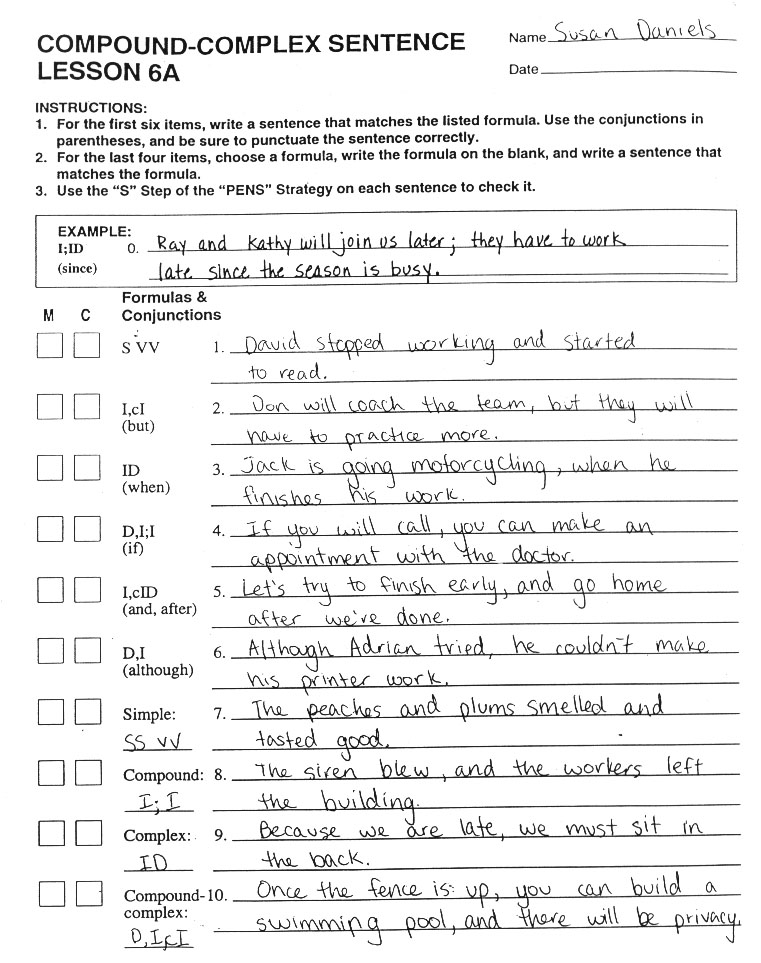 COMPOUND-COMPLEX SENTENCE
LESSON 6A
Name Susan Daniels
Date
INSTRUCTIONS:
1. For the first six items, write a sentence that matches the listed formula. Use the conjunctions in
parentheses, and be sure to punctuate the sentence correctly.
2. For the last four items, choose a formula, write the formula on the blank, and write a sentence that
matches the formula.
3. Use the “S” Step of the “PENS” Strategy on each sentence to check it.
EXAMPLE:
I;ID 0. Ray and Kathy will join us later; they have to work
(since) late since the season is busy.
Formulas &
M C Conjunctions
S VV 1. David stopped working and started
to read.
I,cI 2. Don will coach the team, but they will
(but) have to practice more.
ID 3. Jack is going motorcycling, when he
(when) finishes his work.
D,I;I 4. If you will call, you can make an
(if) appointment with the doctor.
I,cID 5. Let's try to finish early, and go home
(and, after) after we've done.
D,I 6. Although Adrian tried, he couldn't make
(although) his printer work.
Simple: 7. The peaches and plums smelled and
SS VV tasted good.
Compound: 8. The siren blew, and the workers left
I; I the building.
Complex: 9. Because we are late, we must sit in
ID the back.
Compound- 10. Once the fence is up, you can build a
complex: swimming pool, and there will be privacy.
D,I,cI